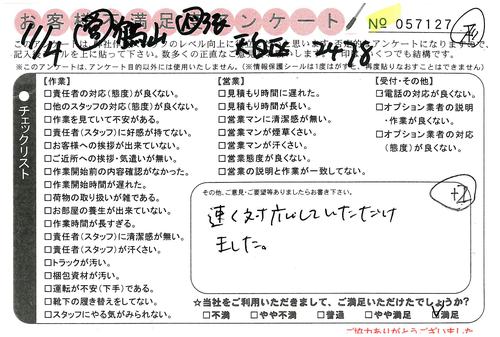 お客様不満足アンケート
№ 057127
記入後シールを上に貼って下さい。数多くの正直なご意見
印はいくつでも結構です。
(※このアンケートは、アンケート目的以外には使用いたしません。(※情報保護シールは1度はがすと、再度貼りなおすことはできません)
チェックリスト
【作業】
□責任者の対応(態度)が良くない。
□他のスタッフの対応(態度)が良くない。
□作業を見ていて不安がある。
□責任者(スタッフ)に好感が持てない。
□お客様への挨拶が出来ていない。
□ご近所への挨拶・気遣いが無い。
□作業開始前の内容確認がなかった。
□作業開始時間が遅れた。
□荷物の取り扱いが雑である。
□お部屋の養生が出来ていない。
□作業時間が長すぎる。
□責任者(スタッフ)に清潔感が無い。
□責任者(スタッフ)が汗くさい。
□トラックが汚い。
□梱包資材が汚い。
□運転が不安(下手)である。
□靴下の履き替えをしてない。
□スタッフにやる気がみられない。
【営業】
□見積もり時間に遅れた。
□見積もり時間が長い。
□営業マンに清潔感が無い。
□営業マンが煙草くさい。
□営業マンが汗くさい。
□営業態度が良くない。
□営業の説明と作業が一致してない。
【受付・その他】
□電話の対応が良くない。
□オプション業者の説明
・作業が良くない。
□オプション業者の対応
(態度)が良くない。
その他、ご意見・ご要望等ありましたらお書き下さい。
+2
速く対応していただけ
ました。
☆当社をご利用いただきまして、ご満足いただけたでしょうか?
□不満 □やや不満 □普通 □やや満足 □満足
ご協力ありがとうございました